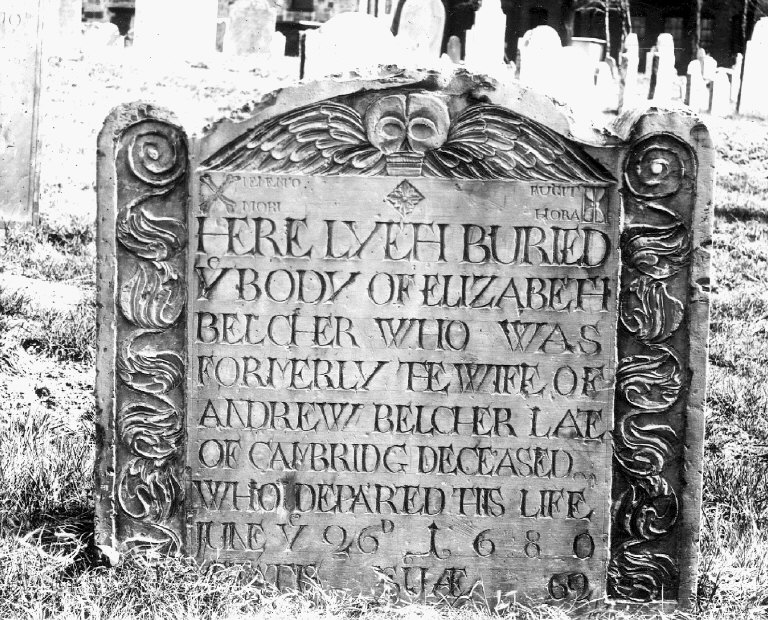 MEMENTO MORI
FUGIT HORA
HERE LYETH BURIED
Yᵉ BODY OF ELIZABETH
BELCHER WHO WAS
FORMERLY THE WIFE OF
ANDREW BELCHER LATE
OF CAMBRIDG DECEASED
WHO DEPARTED THIS LIFE
JUNE Yᵉ 26ᴰ 1680
ÆTATIS SUÆ 62